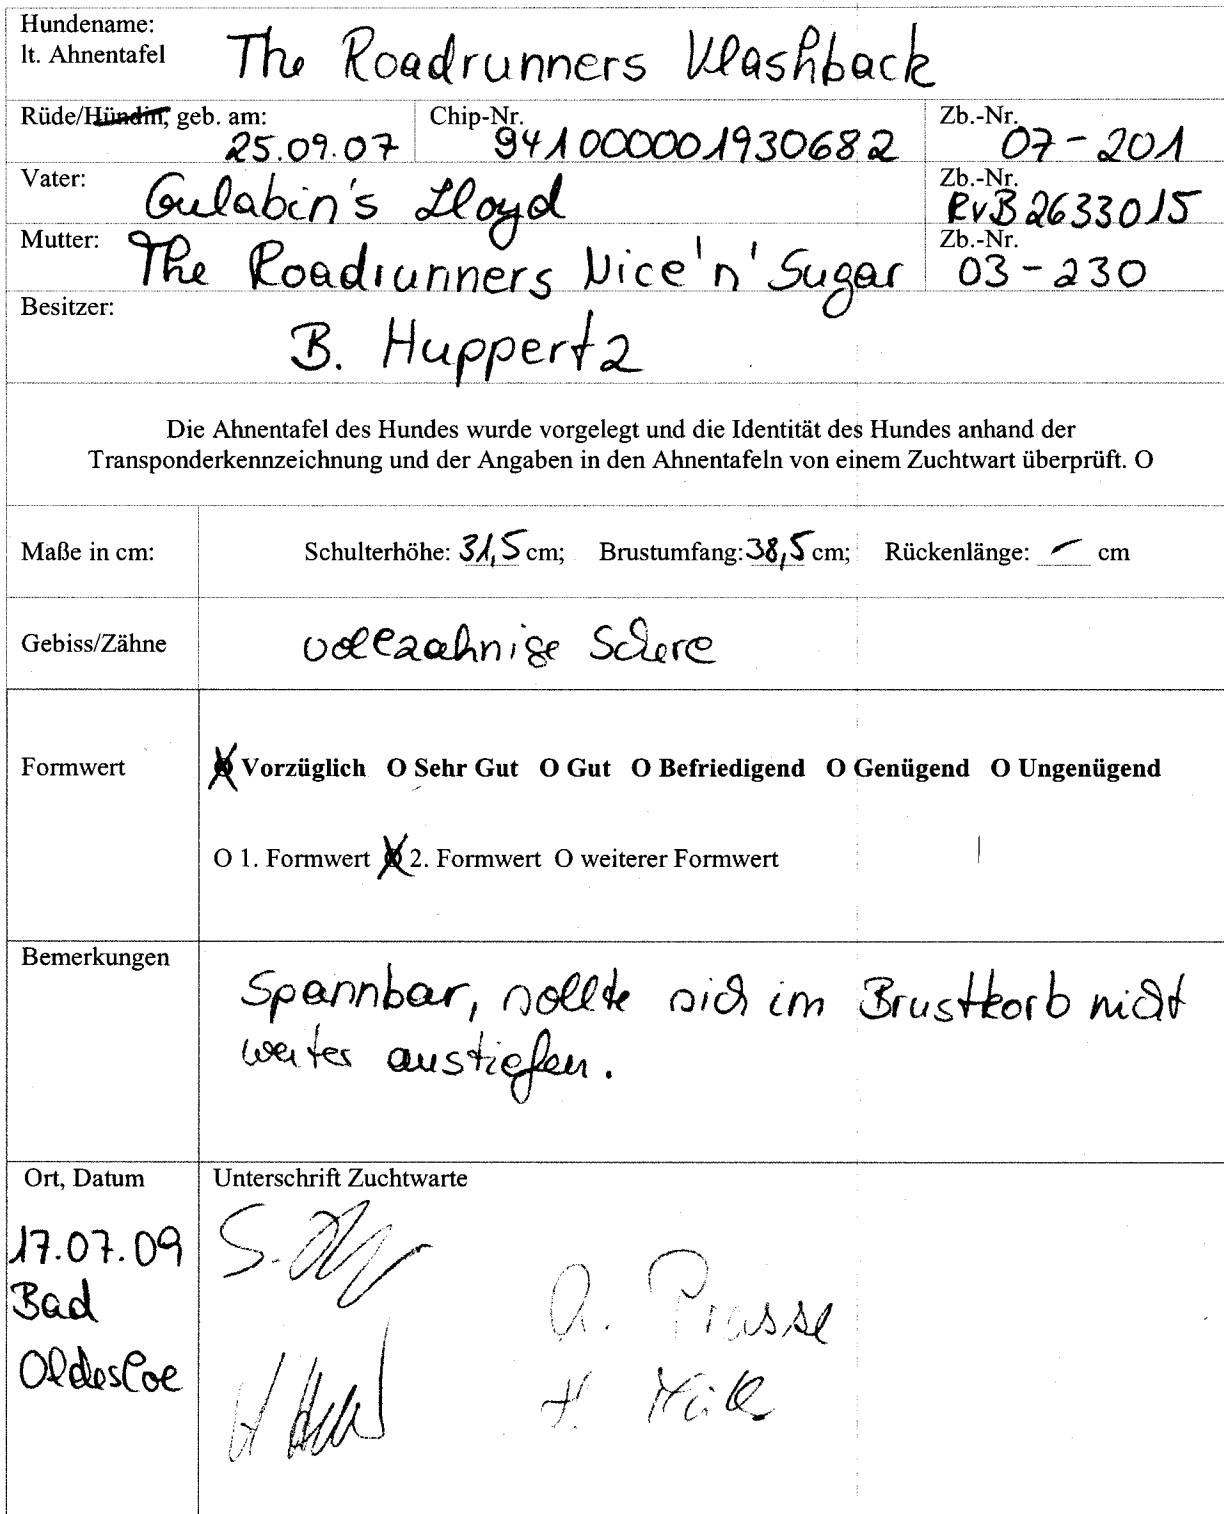 Hundename:
lt. Ahnentafel The Roadrunners Vlashback
Rüde/Hündin, geb. am: 25.09.07 Chip-Nr. 941000001930682 Zb.-Nr. 07-201
Vater: Gulabin's Lloyd Zb.-Nr. RvB2633015
Mutter: The Roadrunners Nice'n' Sugar Zb.-Nr. 03-230
Besitzer: B. Huppertz
Die Ahnentafel des Hundes wurde vorgelegt und die Identität des Hundes anhand der
Transponderkennzeichnung und der Angaben in den Ahnentafeln von einem Zuchtwart überprüft. O
Maße in cm: Schulterhöhe: 31,5 cm; Brustumfang: 38,5 cm; Rückenlänge: - cm
Gebiss/Zähne vollzahnige Schere
Formwert O Vorzüglich O Sehr Gut O Gut O Befriedigend O Genügend O Ungenügend
O 1. Formwert O 2. Formwert O weiterer Formwert
Bemerkungen
Spannbar, sollte sich im Brustkorb nicht
weiter austiefen.
Ort, Datum Unterschrift Zuchtwarte
17.07.09
Bad
Oldesloe
S.
A. Prasse
H.
H.